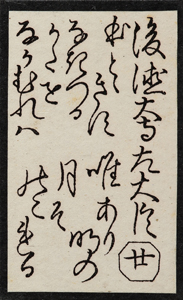 後徳大寺左大臣
廿
ほとゝきす
なきつる
かたを
なかむれハ
唯あり明の
月そ
のこれる